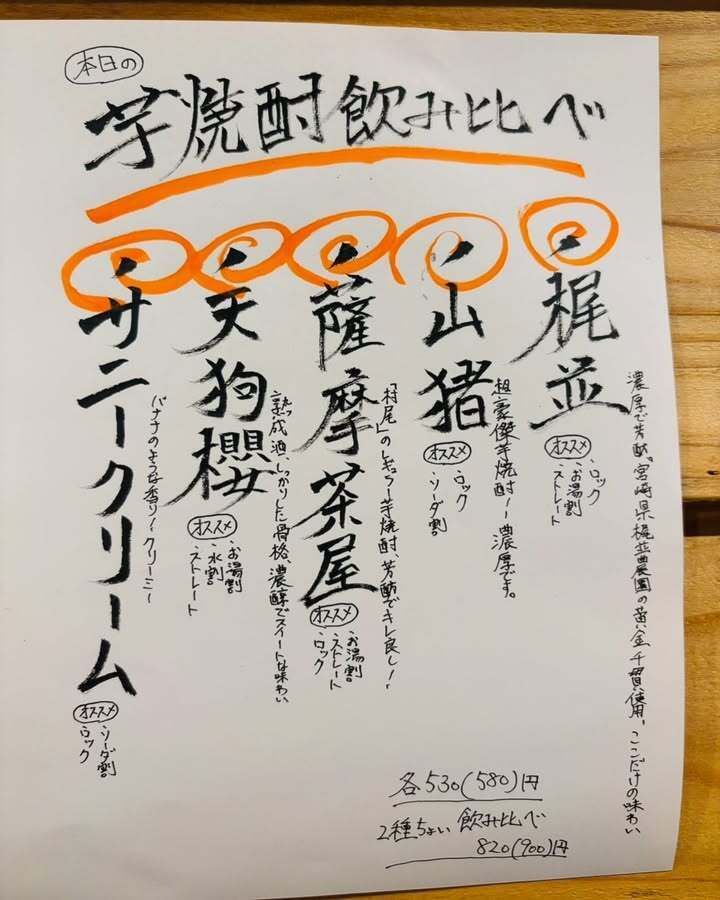 本日の
芋焼酎飲み比べ
・梶並
濃厚で芳醇。宮崎県梶並農園の黄金千貫使用。ここだけの味わい
オススメ
・ロック
・お湯割
・ストレート
・山猪
超豪傑芋焼酎!濃厚です。
オススメ
・ロック
・ソーダ割
・薩摩茶屋
「村尾」のレギュラー芋焼酎、芳醇でキレ良し!
オススメ
・お湯割
・ストレート
・ロック
・天狗櫻
熟成酒、しっかりした骨格、濃醇でスイートな味わい
オススメ
・お湯割
・水割
・ストレート
・サニークリーム
バナナのような香り!クリーミー
オススメ
・ソーダ割
・ロック
各530(580)円
2種ちょい飲み比べ
820(900)円